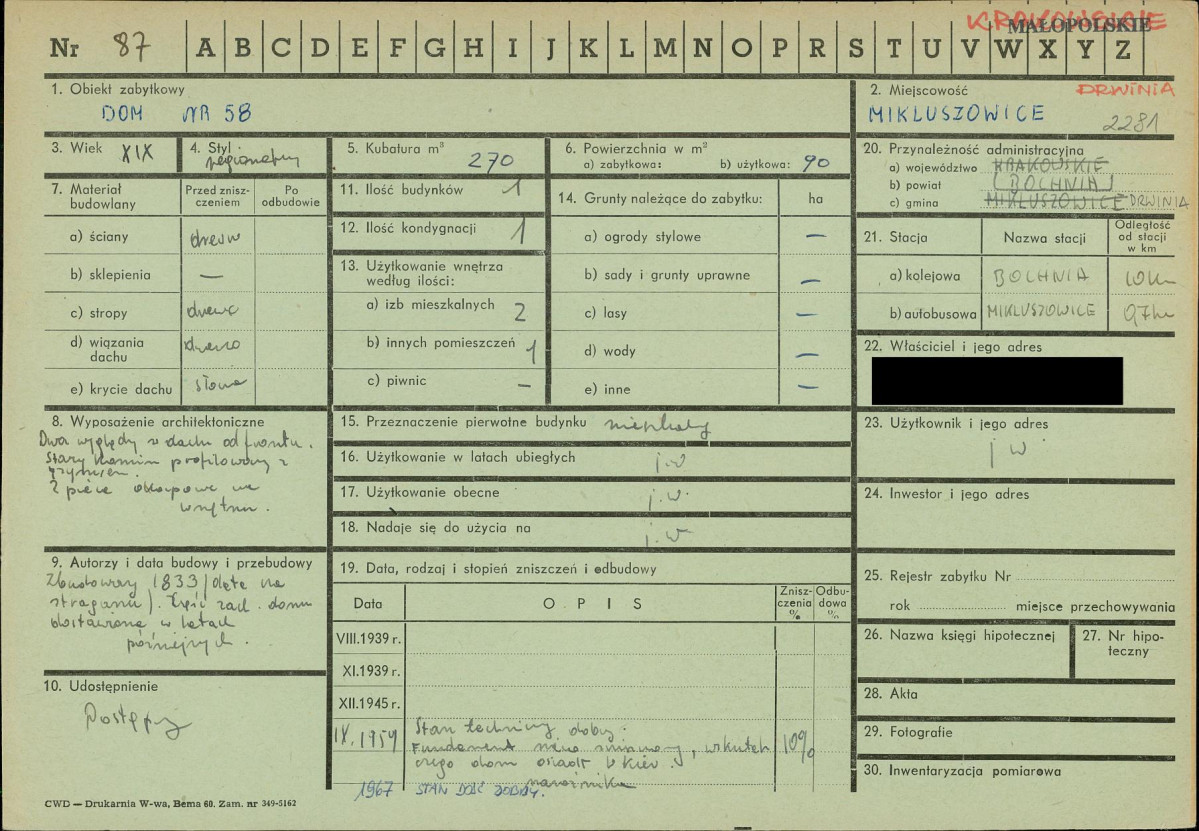 KRAKOWSKIE
MAŁOPOLSKIE
Nr 87 A B C D E F G H I J K L M N O P R S T U V W X Y Z
1. Obiekt zabytkowy
DOM NR 58
2. Miejscowość DRWINIA
MIKLUSZOWICE
2281
3. Wiek XIX
4. Styl regionalny
5. Kubatura m³ 270
6. Powierzchnia w m²
a) zabytkowa: b) użytkowa: 90
20. Przynależność administracyjna
a) województwo KRAKOWSKIE
b) powiat (BOCHNIA)
c) gmina MIKLUSZOWICE DRWINIA
7. Materiał budowlany
Przed zniszczeniem
Po odbudowie
a) ściany drewn
b) sklepienia —
c) stropy drewno
d) wiązania dachu drewno
e) krycie dachu słoma
11. Ilość budynków 1
12. Ilość kondygnacji 1
13. Użytkowanie wnętrza
według ilości:
a) izb mieszkalnych 2
b) innych pomieszczeń 1
c) piwnic —
14. Grunty należące do zabytku: ha
a) ogrody stylowe —
b) sady i grunty uprawne —
c) lasy —
d) wody —
e) inne —
21. Stacja Nazwa stacji Odległość od stacji w km
a) kolejowa BOCHNIA 10 km
b) autobusowa MIKLUSZOWICE 0,7 km
22. Właściciel i jego adres
8. Wyposażenie architektoniczne
Dwa wyględy w dachu od frontu.
Stary komin profilowany z
gzymsem.
2 piece okapowe we
wnętrzu.
15. Przeznaczenie pierwotne budynku mieszkalny
16. Użytkowanie w latach ubiegłych j.w
17. Użytkowanie obecne j.w.
18. Nadaje się do użycia na j.w
23. Użytkownik i jego adres
j w
24. Inwestor i jego adres
9. Autorzy i data budowy i przebudowy
Zbudowany 1833 (data na
stragarzu). Część zach. domu
dostawiona w latach
późniejszych.
19. Data, rodzaj i stopień zniszczeń i odbudowy
Data OPIS Zniszczenia % Odbudowa %
VIII.1939 r.
XI.1939 r.
XII.1945 r.
IX.1959 Stan techniczny dobry.
Fundament, wskutek 10%
czego dom osiadł w
narożniku
1967 STAN DOŚĆ DOBRY.
25. Rejestr zabytku Nr
rok miejsce przechowywania
26. Nazwa księgi hipotecznej
27. Nr hipoteczny
10. Udostępnienie
Dostępny
28. Akta
29. Fotografie
30. Inwentaryzacja pomiarowa
CWD — Drukarnia W-wa, Bema 60. Zam. nr 349-5162